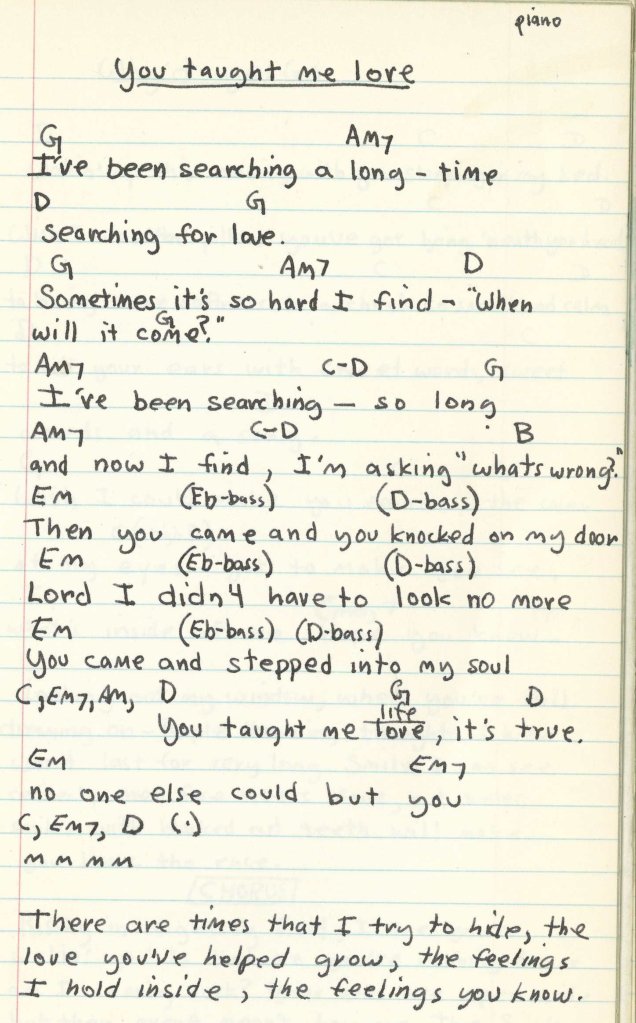 piano
You taught me love
G Am7
I've been searching a long - time
D G
searching for love.
G Am7 D
Sometimes it's so hard I find - "When
will it come?."
G
Am7 C-D G
I've been searching - so long
Am7 C-D B
and now I find, I'm asking "whats wrong?."
Em (Eb-bass) (D-bass)
Then you came and you knocked on my door
Em (Eb-bass) (D-bass)
Lord I didn4 have to look no more
Em (Eb-bass) (D-bass)
You came and stepped into my soul
C, Em7, Am, D G D
life
You taught me love, it's true.
Em Em7
no one else could but you
C, Em7, D (·)
m m m m
There are times that I try to hide, the
love you've helped grow, the feelings
I hold inside, the feelings you know.